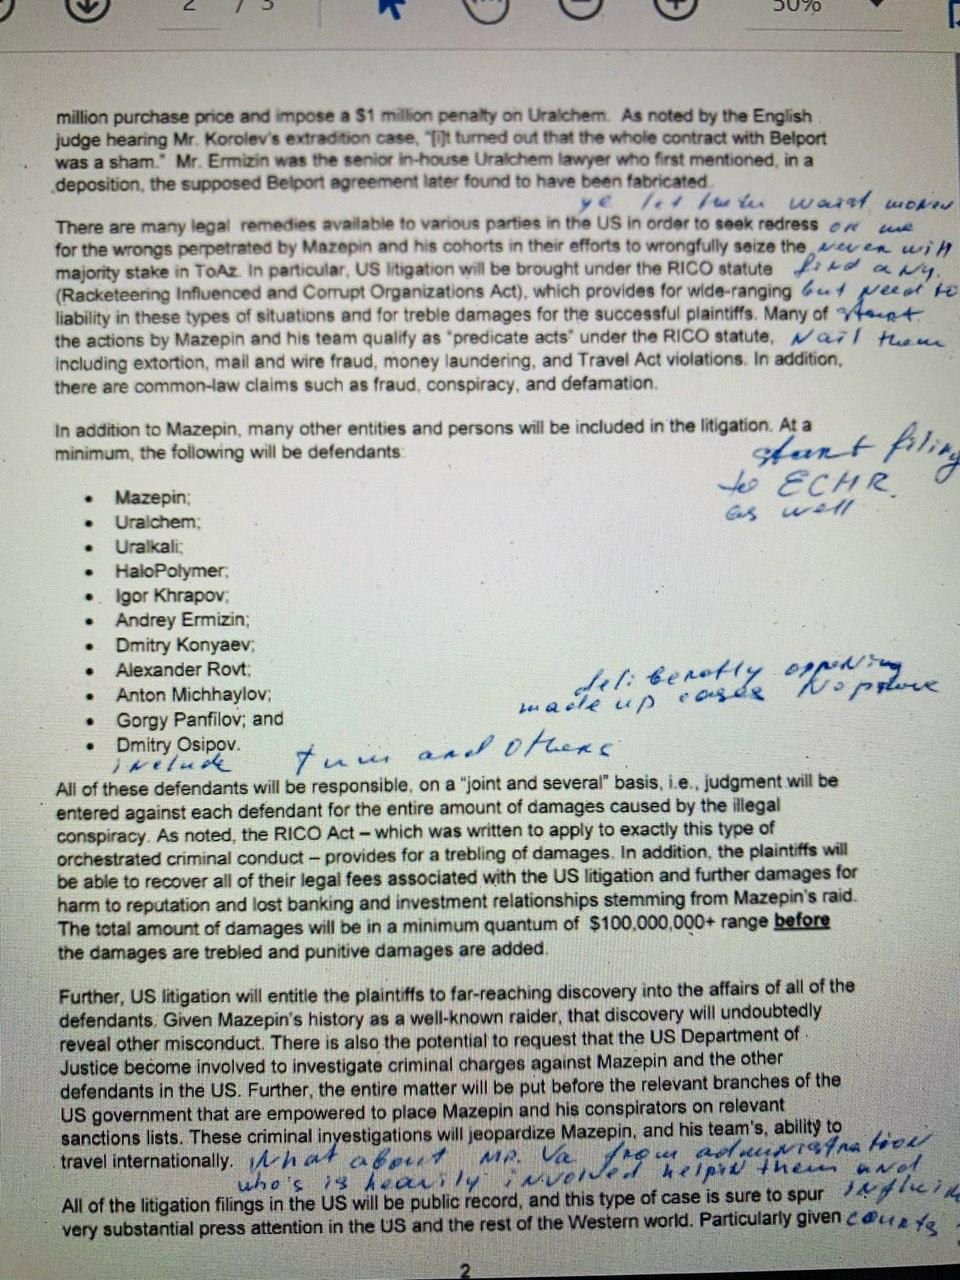 2 / 3
50%
million purchase price and impose a $1 million penalty on Uralchem. As noted by the English
judge hearing Mr. Korolev's extradition case, "[i]t turned out that the whole contract with Belport
was a sham." Mr. Ermizin was the senior in-house Uralchem lawyer who first mentioned, in a
deposition, the supposed Belport agreement later found to have been fabricated.
ye let them waist money
on me
never will
find any.
but need to
start
Nail them
There are many legal remedies available to various parties in the US in order to seek redress
for the wrongs perpetrated by Mazepin and his cohorts in their efforts to wrongfully seize the
majority stake in ToAz. In particular, US litigation will be brought under the RICO statute
(Racketeering Influenced and Corrupt Organizations Act), which provides for wide-ranging
liability in these types of situations and for treble damages for the successful plaintiffs. Many of
the actions by Mazepin and his team qualify as "predicate acts" under the RICO statute,
including extortion, mail and wire fraud, money laundering, and Travel Act violations. In addition,
there are common-law claims such as fraud, conspiracy, and defamation.
In addition to Mazepin, many other entities and persons will be included in the litigation. At a
minimum, the following will be defendants:
start filing
to ECHR.
as well
• Mazepin;
• Uralchem;
• Uralkali;
• HaloPolymer;
• Igor Khrapov;
• Andrey Ermizin;
• Dmitry Konyaev;
• Alexander Rovt;
• Anton Michhaylov;
• Gorgy Panfilov; and
• Dmitry Osipov.
deliberatly oppening
made up cases No prove
include and others
All of these defendants will be responsible, on a "joint and several" basis, i.e., judgment will be
entered against each defendant for the entire amount of damages caused by the illegal
conspiracy. As noted, the RICO Act – which was written to apply to exactly this type of
orchestrated criminal conduct – provides for a trebling of damages. In addition, the plaintiffs will
be able to recover all of their legal fees associated with the US litigation and further damages for
harm to reputation and lost banking and investment relationships stemming from Mazepin's raid.
The total amount of damages will be in a minimum quantum of $100,000,000+ range before
the damages are trebled and punitive damages are added.
Further, US litigation will entitle the plaintiffs to far-reaching discovery into the affairs of all of the
defendants. Given Mazepin's history as a well-known raider, that discovery will undoubtedly
reveal other misconduct. There is also the potential to request that the US Department of
Justice become involved to investigate criminal charges against Mazepin and the other
defendants in the US. Further, the entire matter will be put before the relevant branches of the
US government that are empowered to place Mazepin and his conspirators on relevant
sanctions lists. These criminal investigations will jeopardize Mazepin, and his team's, ability to
travel internationally.
What about Mr. Va from administration
who's is heavily involved helpin them and
courts
All of the litigation filings in the US will be public record, and this type of case is sure to spur
very substantial press attention in the US and the rest of the Western world. Particularly given
2